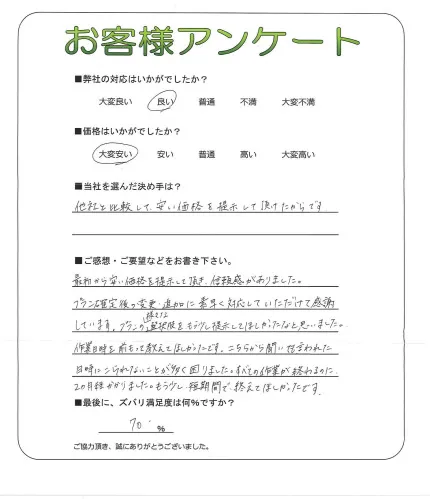 お客様アンケート
■弊社の対応はいかがでしたか？
大変良い 良い 普通 不満 大変不満
■価格はいかがでしたか？
大変安い 安い 普通 高い 大変高い
■当社を選んだ決め手は？
他社と比較して、安い価格を提示して頂けたからです
■ご感想・ご要望などをお書き下さい。
最初から安い価格を提示して頂き、信頼感がありました。
プラン確定後の変更・追加に素早く対応していただけて感謝
しています。プランの選択肢をもう少し提示してほしかったなと思いました。
作業日時を前もって教えてほしかったです。こちらから聞い
日時にこられないことが多く困りました。すべての作業が終わるのに、
2カ月程かかりました。もう少し短期間で、終えてほしかったです。
■最後に、ズバリ満足度は何％ですか？
70 ％
ご協力頂き、誠にありがとうございました。